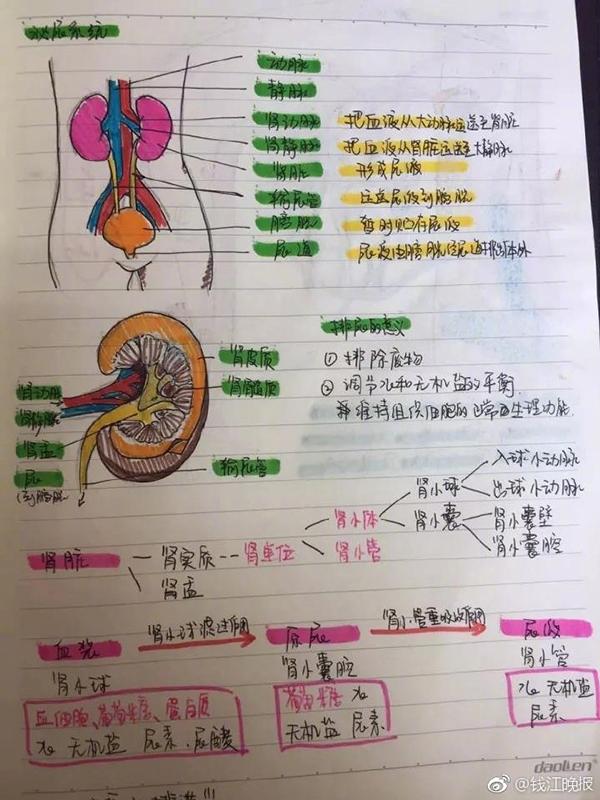 泌尿系统
动脉
静脉
肾动脉 把血液从大动脉运送至肾脏
肾静脉 把血液从肾脏运送至大静脉
肾脏 形成尿液
输尿管 运送尿液到膀胱
膀胱 暂时贮存尿液
尿道 尿液由膀胱经尿道排出体外
排尿的意义
肾皮质
① 排除废物
肾髓质
② 调节水和无机盐的平衡
肾动脉
肾静脉
维持组织细胞的正常生理功能.
肾盂
尿
(到膀胱)
输尿管
入球小动脉
肾小球
出球小动脉
肾小体
肾小囊
肾小囊壁
肾小囊腔
肾脏
肾实质
肾单位
肾小管
肾盂
血浆
肾小球滤过作用
原尿
肾小管重吸收作用
尿液
肾小球
肾小囊腔
肾小管
血细胞、葡萄糖、蛋白质
水 无机盐 尿素、尿酸
葡萄糖 水
无机盐 尿素
水 无机盐
尿素
daolien
@钱江晚报